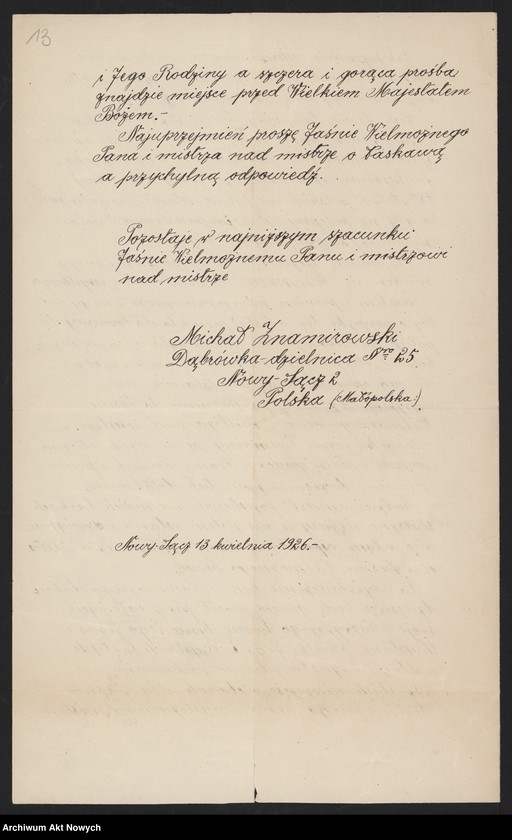 13
i Jego Rodziny a szczera i gorąca prośba
znajdzie miejsce przed Wielkiem Majestatem
Bożem.-
Najuprzejmień proszę Jaśnie Wielmożnego
Pana i mistrza nad mistrze o łaskawą
a przychylną odpowiedź.
Pozostaje w najniższym szacunku
Jaśnie Wielmożnemu Panu i mistrzowi
nad mistrze
Michał Znamirowski
Dąbrówka-dzielnica Nro 125
Nowy-Sącz 2
Polska (Małopolska:)
Nowy-Sącz 13 kwietnia 1926.-
Archiwum Akt Nowych